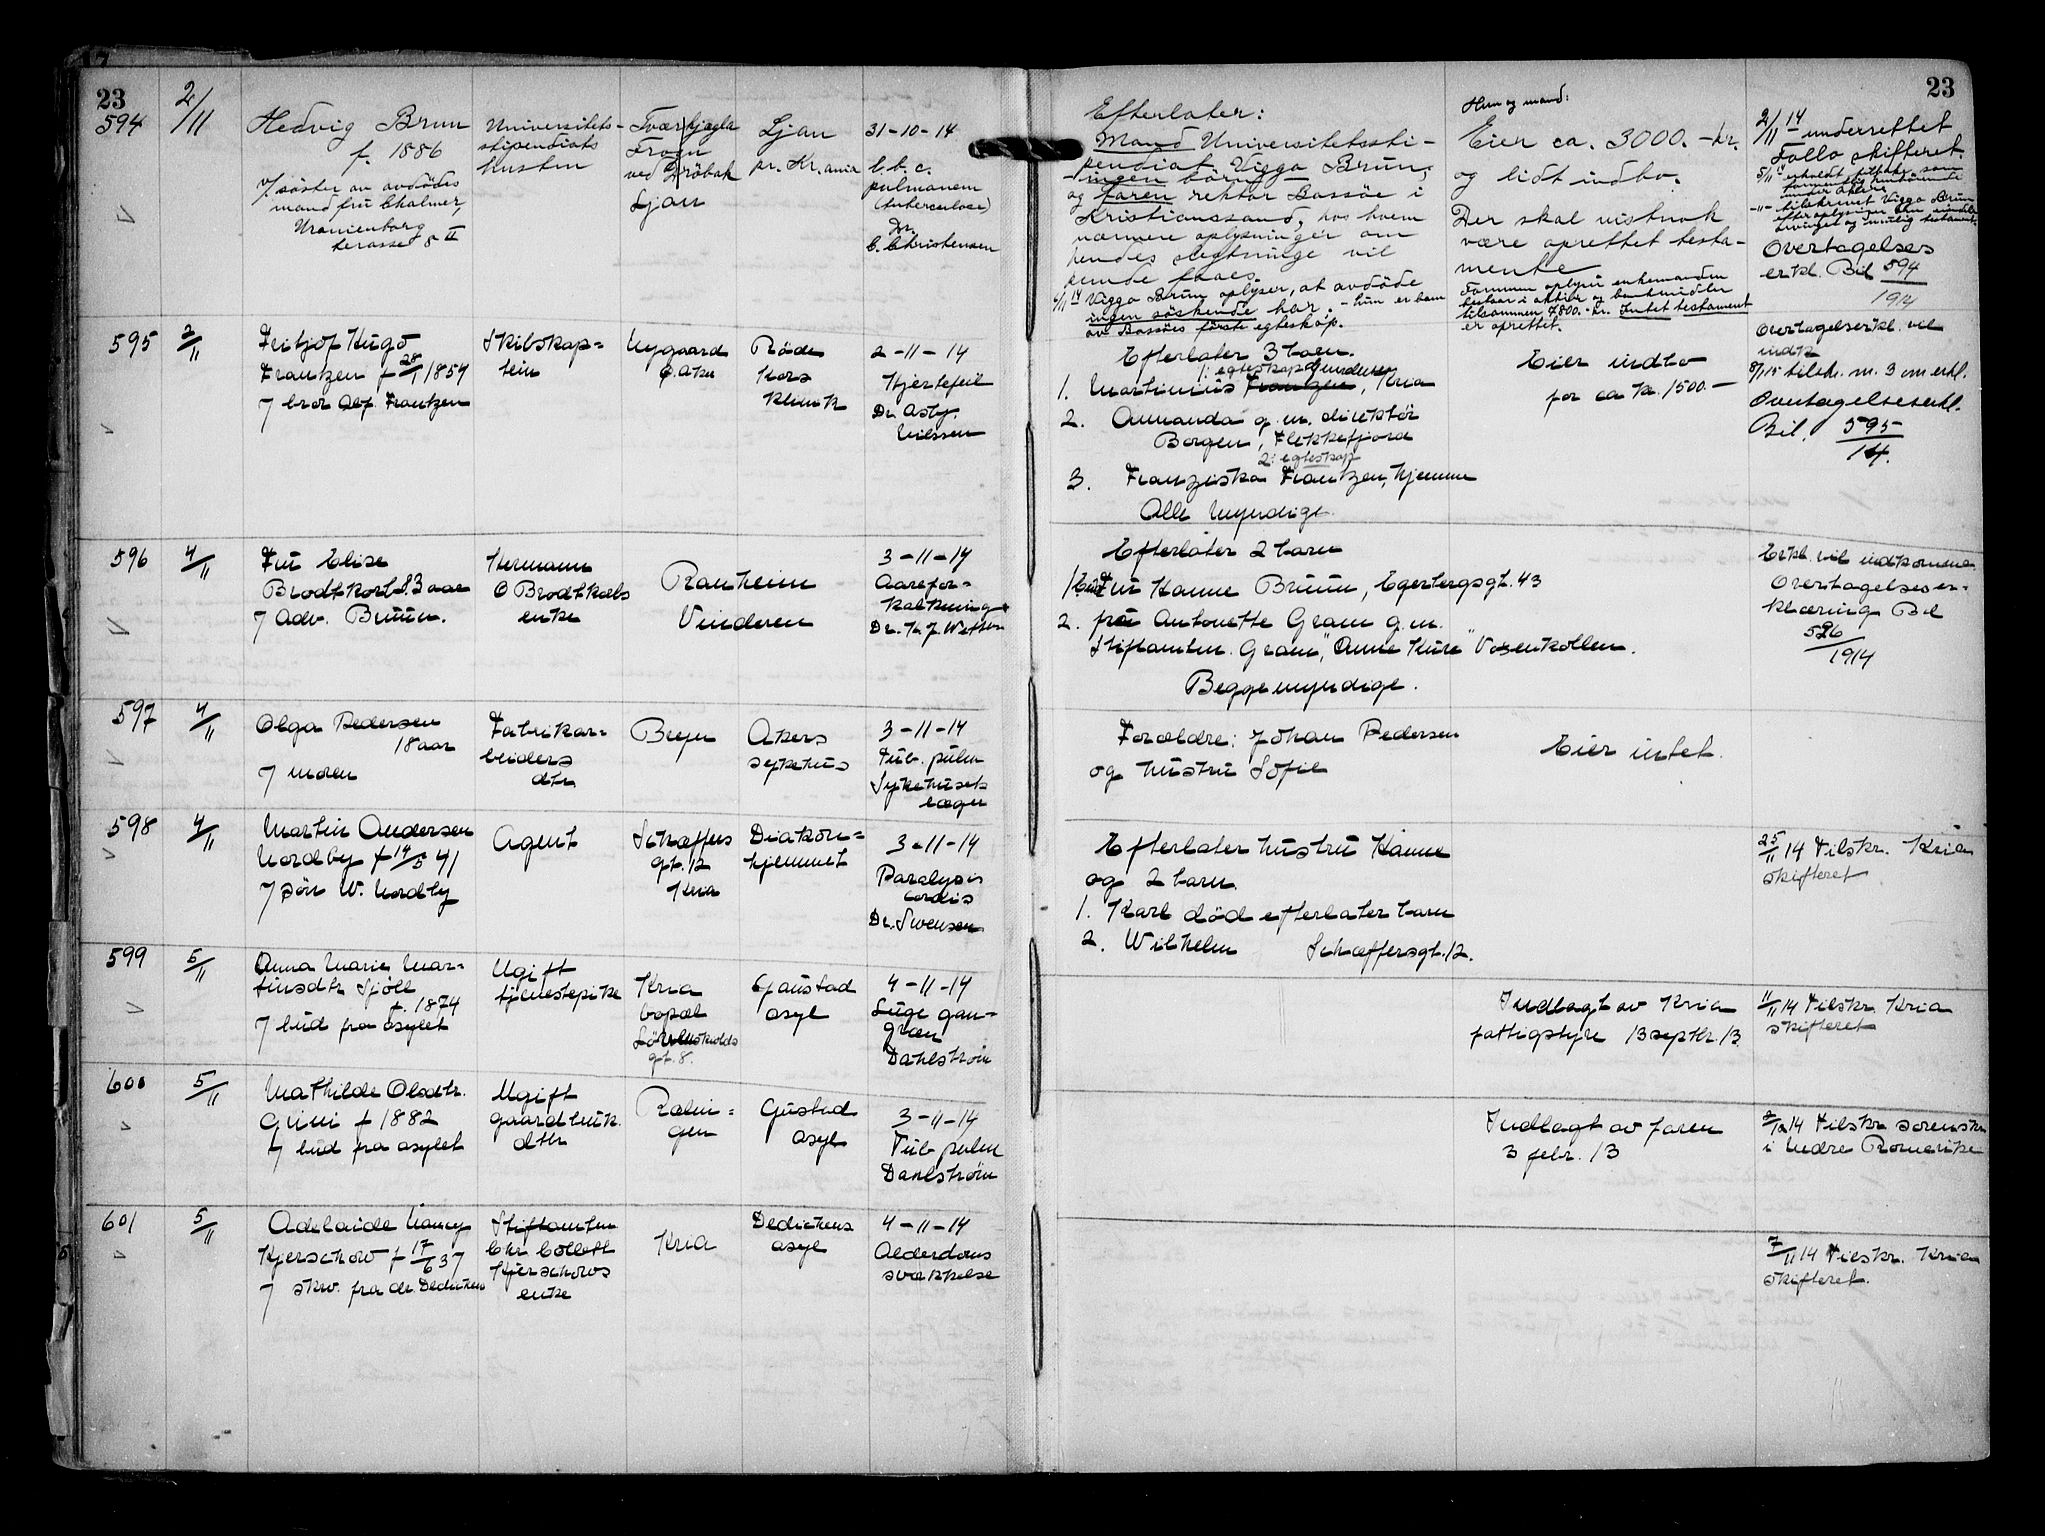 23
594
2/11
Hedvig Brun
f. 1886
v/ söster av avdödes
mand fru Chalmer,
Uranienborg
terasse 8 II
Universitets-
stipendiats
hustru
Frogn
ved Dröbak
Ljan
Ljan
pr. Kr.ania
31-10-14
t.b.c.
pulmanem
(tuberculose)
Dr.
C. Christensen
Efterlater:
Mand Universitetssti-
pendiat Viggo Brun,
ingen börn
og faren rektor Bassöe i
Kristianssand, hos hvem
nærmere oplysninger om
hendes slegtninge vil
kunde faaes.
6/11 14 Viggo Brun oplyser, at avdöde
ingen söskende har. - hun er barn
av Bassöes förste egteskap.
Hun og mand:
Eier ca. 3000.- kr.
og lidt indbo.
Der skal vistnok
være oprettet testa-
mente
Formuen oplyser enkemanden
bestaar i aktier og bankmidler
tilsammen 4800.- kr. Intet testament
er oprettet.
23
2/11 14 underrettet
Follo skifteret.
Overtagelses
erkl. Bil 594
1914
595
2/11
Fritjof Hugo
Frantzen f 28/1 1854
7 bror Frantzen
Skibskap-
tein
Nygaard
Ø. Aker
Röde
Kors
Klinik
2-11-14
Hjertefeil
Dr. Asbj.
Nilssen
Efterlater 3 barn.
1. egteskap
1. Martinius Gundersen, Kria
2. Amanda g. m. direktör
Borgen, Flekkefjord
2. egteskap
3. Franziska Frantzen, hjemme
Alle myndige
Eier indbo
for ca kr. 1500.-
Overtagelseserkl. vil
indk
8/1 15 tilskr. m. 3 om erkl.
Overtagelseserkl.
Bil. 595
14.
596
4/11
Fru Elise
Brodtkorb f. Baae
7 Adv. Bruun.
Hermann
O Brodtkorbs
enke
Ranheim
Vinderen
3-11-14
Aarefor-
kalkning
Dr. K. J. Wetter
Efterlater 2 barn
1. Fru Hanne Bruun, Egertorpsgt. 43
2. fru Antonette Gram g. m.
Stiftamtm. Gram, "Anne Kure" Voxenkollen.
Begge myndige.
Erkl. vil indkomme
Overtagelseser-
klæring Bil
596
1914
597
4/11
Olga Pedersen
18 aar
7 moren
Fabrikar-
beiders
dtr
Bryn
Akers
sykehus
3-11-14
Tub. pulm
Sykehusets
læger
Forældre: Johan Pedersen
og hustru Sofie
Eier intet.
598
4/11
Martin Andersen
Nordby f 14/5 41
7 sön W. Nordby
Agent
Schæffers
gt. 12
Kria
Diakon-
hjemmet
3-11-14
Paralysis
cordis
Dr. Svensen
Efterlater hustru Hanne
og 2 barn.
1. Karl död efterlater barn
2. Wilhelm Schæffersgt. 12.
25/11 14 Tilskr. Kria
skifteret
599
5/11
Anna Marie Mar-
tinsdtr Sjöll
f. 1874
7 bud fra asylet
Ugift
tjenestepike
Kria
bopæl
Lövenskiolds
gt. 8.
Gaustad
asyl
4-11-14
Luge gan-
græn
Dahlström
Indlagt av Kria
fattigstyre 13 septbr. 13
11/11 14 Tilskr. Kria
skifteret
600
5/11
Mathilde Olsdtr.
Grini f 1882
7 bud fra asylet
Ugift
gaardbruk.
dtr
Rælin-
gen
Gustad
asyl
3-11-14
Tub pulm
Dahlström
Indlagt av faren
3 febr. 13
2/12 14 Tilskr sorenskr
i Nedre Romerike
601
5/11
Adelaide Nancy
Kjerschow f 17/6 37
7 skr. fra dr. Dedichen
Stiftamtm
Chr. Collett
Kjerschows
enke
Kria
Dedichens
asyl
4-11-14
Alderdoms
svækkelse
7/11 14 Tilskr. Kria
skifteret.